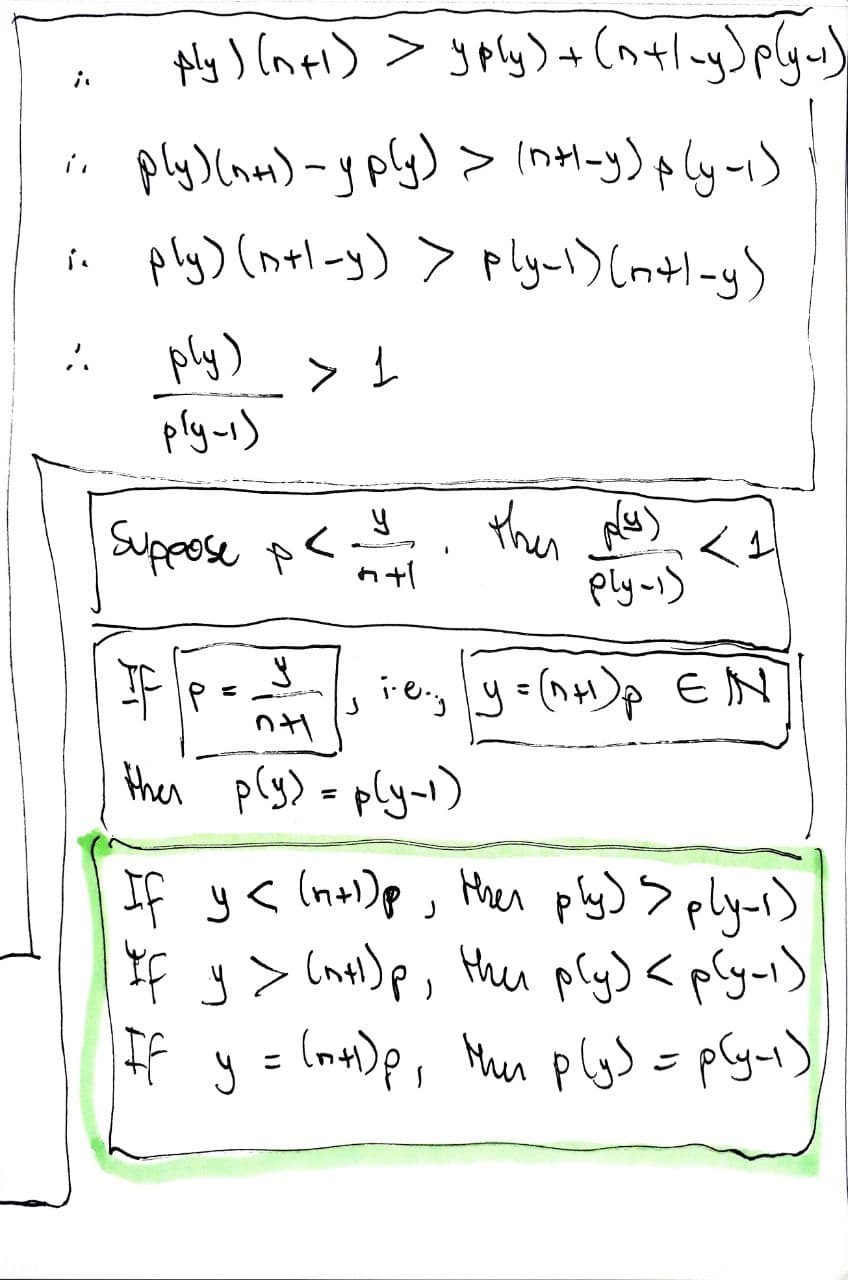 ∴ p(y)(n+1) > y p(y) + (n+1-y) p(y-1)
∴ p(y)(n+1) - y p(y) > (n+1-y) p(y-1)
∴ p(y)(n+1-y) > p(y-1)(n+1-y)
∴ p(y)/p(y-1) > 1
Suppose p < y/n+1. Then p(y)/p(y-1) < 1
If p = y/n+1, i.e., y = (n+1)p ∈ ℕ
then p(y) = p(y-1)
If y < (n+1)p, then p(y) > p(y-1)
If y > (n+1)p, then p(y) < p(y-1)
If y = (n+1)p, then p(y) = p(y-1)